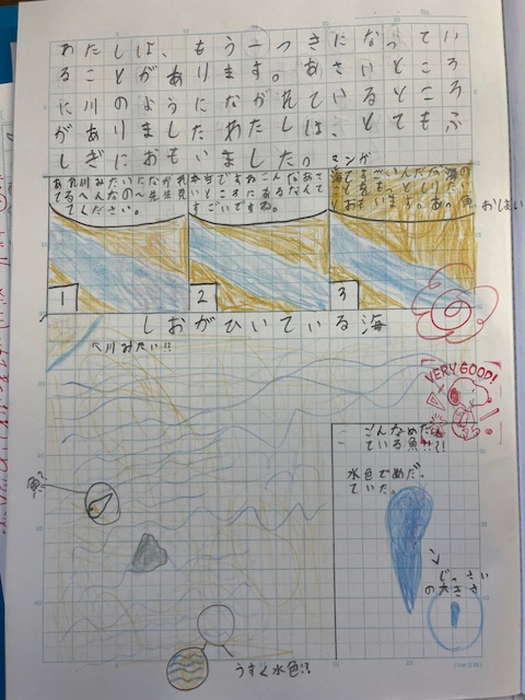 わたしは、もう一つきになってい
ることがあります。あさいところ
に川のようにながれているところ
がありましたわたしは、とてもふ
しぎにおもいました。
マンガ
あれ川みたいにながれ
てるへんなの〜先生見
てください。
本当ですねこんなあさ
いところにあるなんて
すごいですね。
海ってすごいんだな海の
ことをもっとしりたい
とおもいます。あっ魚
おしまい
1
2
3
しおがひいている海
川みたい!!
VERY GOOD!
こんなめだっ
ている魚!!?!
水色でめだっ
ていた。
魚?
じっさい
の大きさ
うすく水色!?